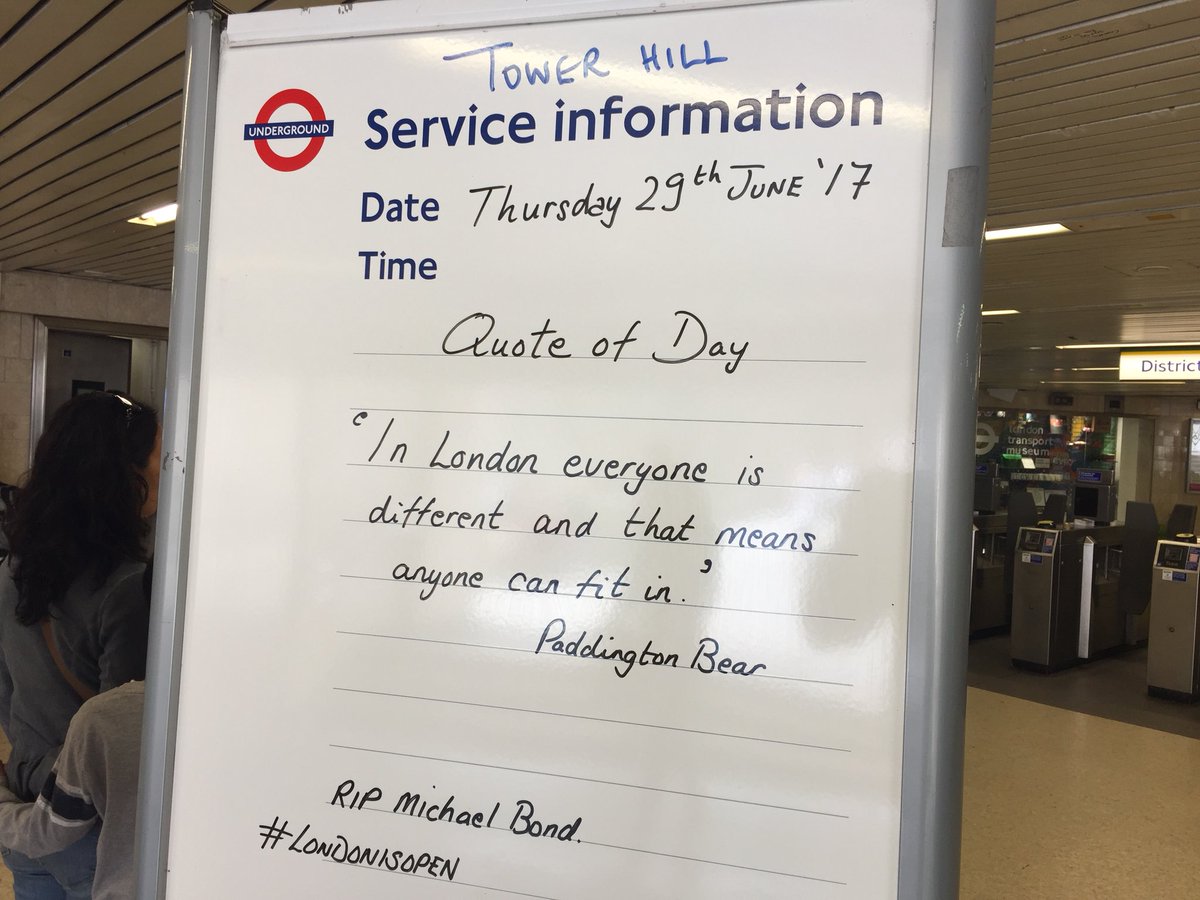 TOWER HILL
UNDERGROUND
Service information
Date Thursday 29th JUNE '17
Time
Quote of Day
'In London everyone is
different and that means
anyone can fit in.'
Paddington Bear
RIP Michael Bond.
#LONDONISOPEN
District
london
transport
museum